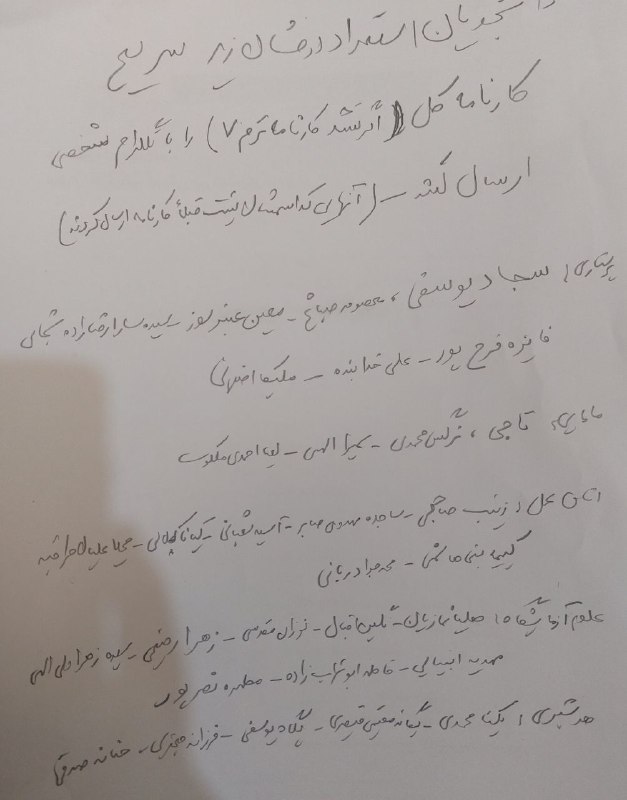 دانشجویان استعداد درخشان زیر سریع
کارنامه کل (اگر نشد کارنامه ترم ۷) را با تلگرام شخصی
ارسال کنند - (آنهایی که اسمشان نیست قبلاً کارنامه ارسال کردند)
پرستاری: سجاد یوسفی، معصومه صباغ - معین عنبرسوز - سیده سارا رضازاده شجاعی
فایزه فرح پور - علی خدابنده - ملیکا اصفهانی
مامایی: تاجی، نرگس محمدی - سمیرا الهی - لعیا احمدی ملکوت
اتاق عمل: زینب حاجی - ساجده مهدوی صابر - آسیه شعبانی - کیانا گیلانی - محیا
کیمیا بنی هاشمی - محمدجواد ربانی
علوم آزمایشگاه: هلیا نمازیان - نگین اقبال - نوران مقدسی - زهرا رضی - سیده زهرا ولی الهی
مهدیه انبیایی - فاطمه ابوتراب زاده - مطهره نصر پور
هوشبری: یکتا محمدی - یگانه قیصری - پگاه یوسفی - فرزانه - حنانه صدقی